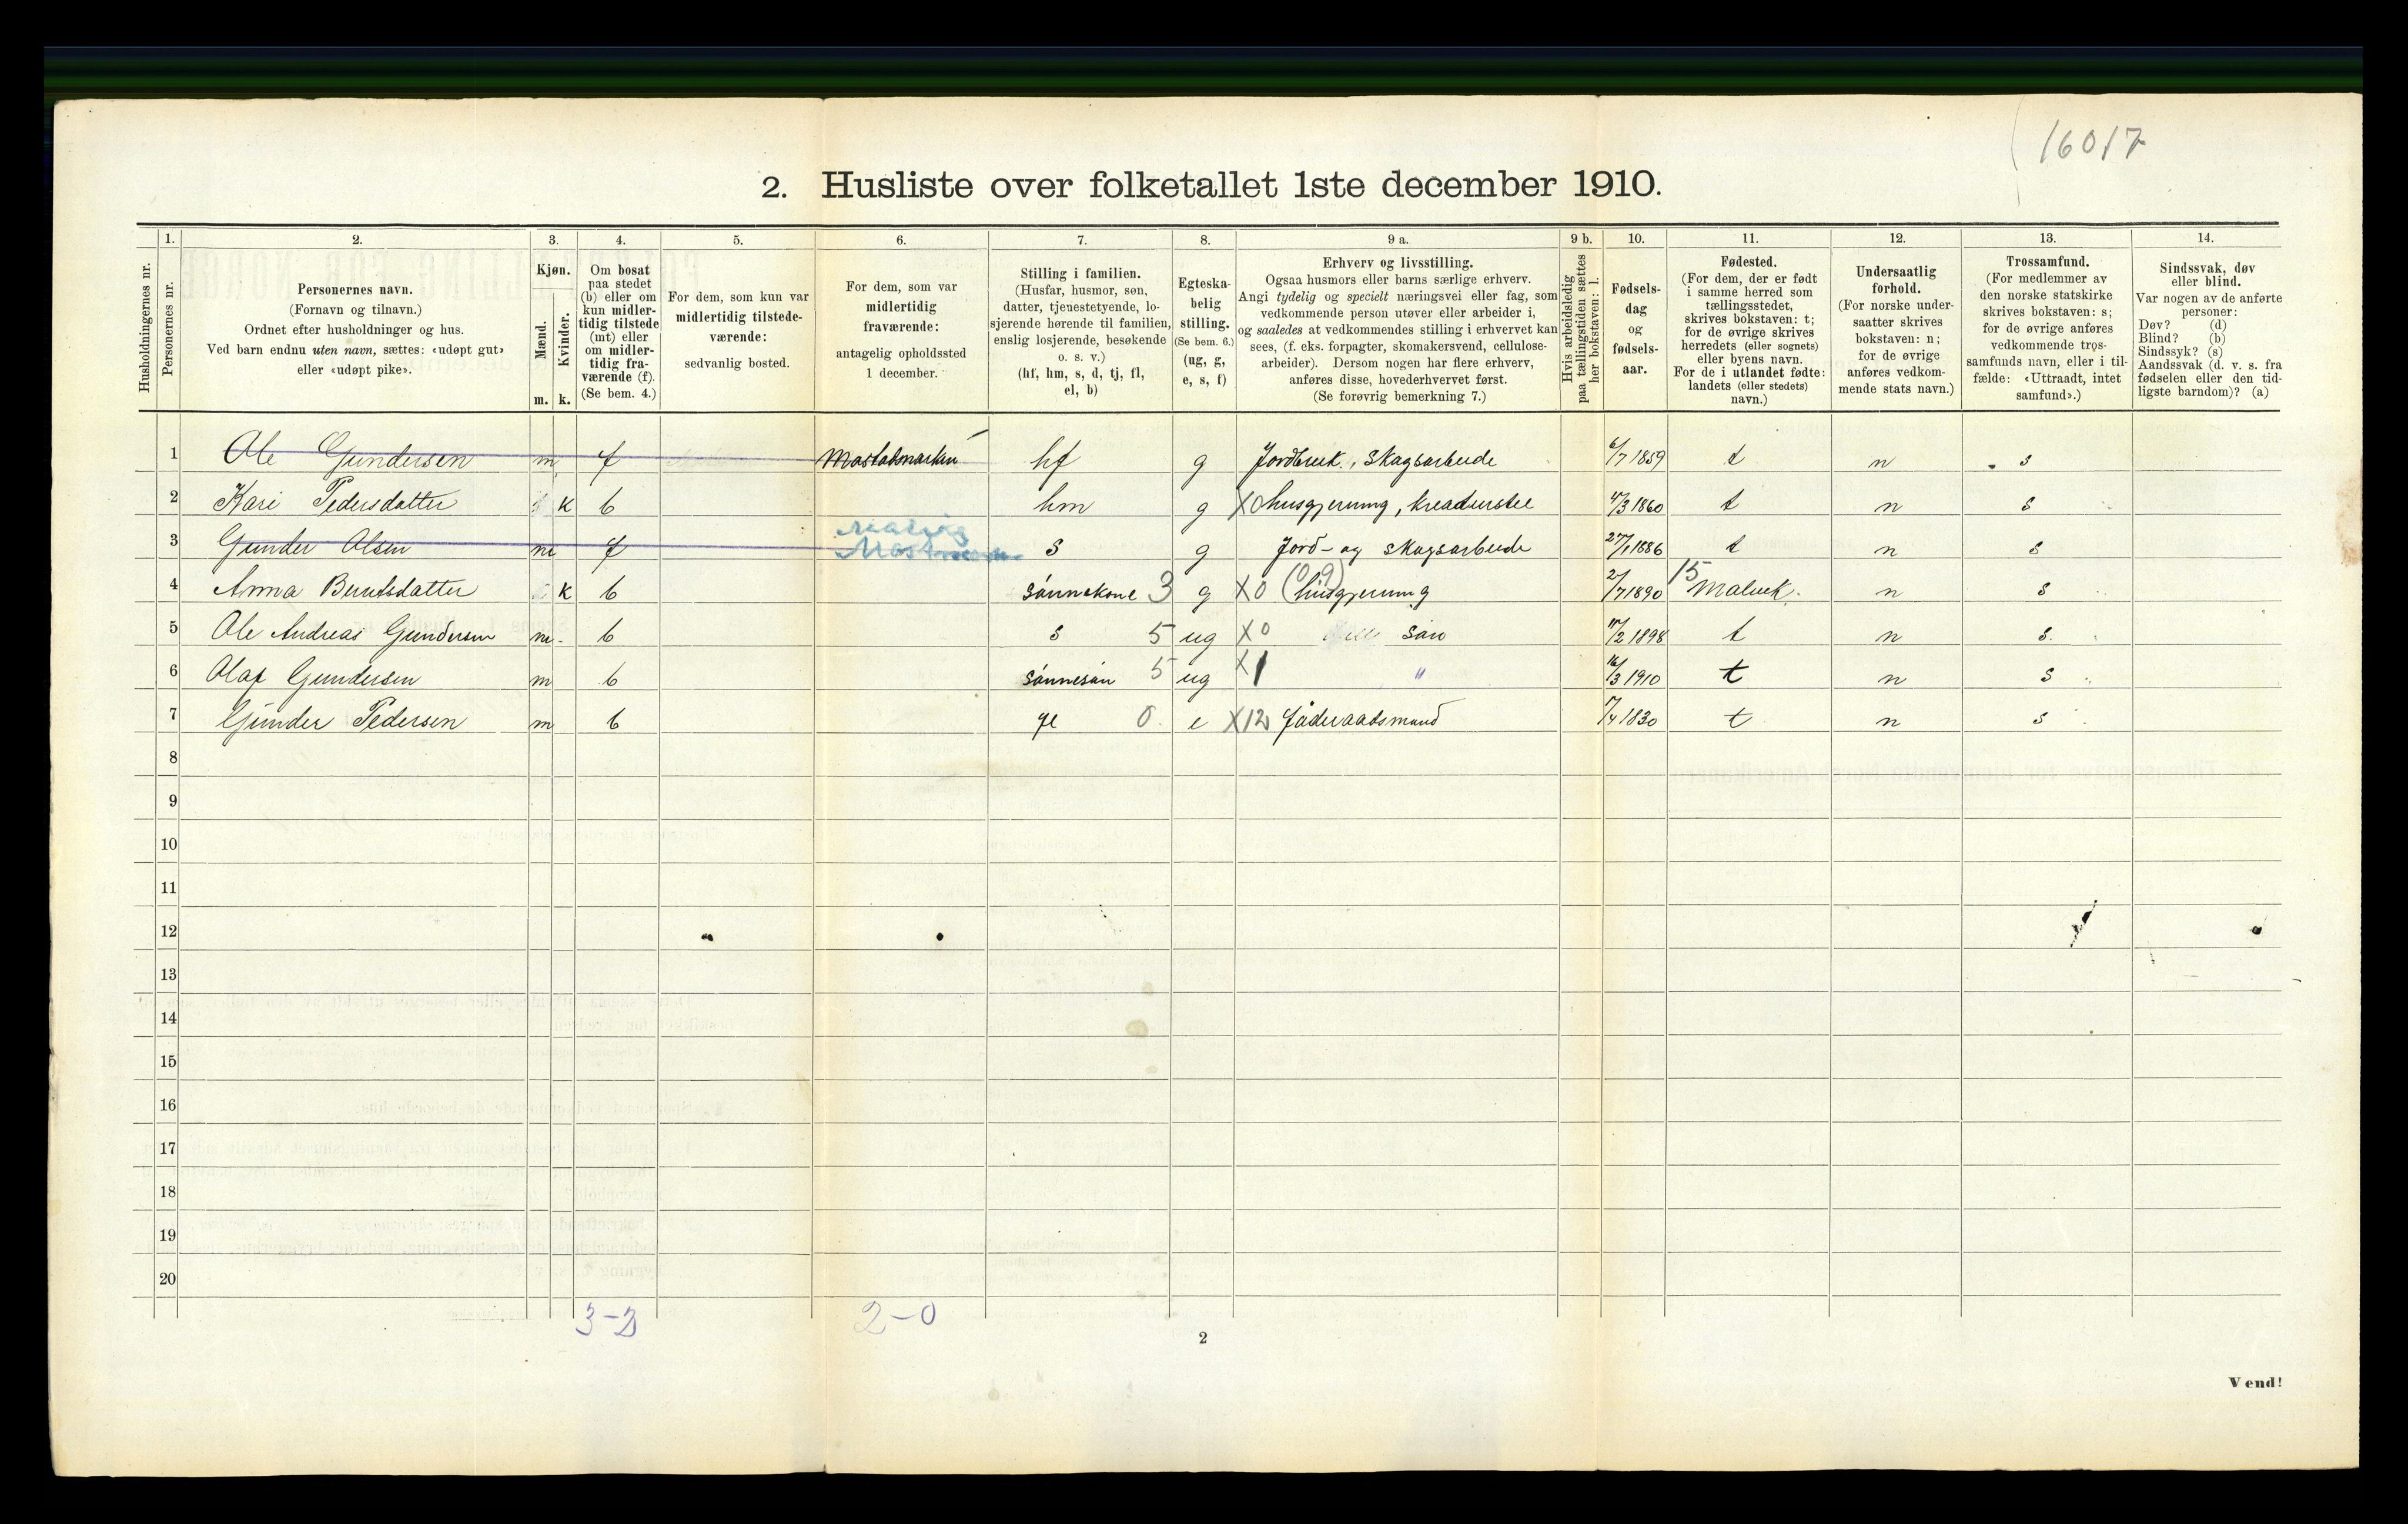 16017
2. Husliste over folketallet 1ste december 1910.
Husholdningernes nr.
1.
Personernes nr.
2.
Personernes navn.
(Fornavn og tilnavn.)
Ordnet efter husholdninger og hus.
Ved barn endnu uten navn, sættes: «udøpt gut»
eller «udøpt pike».
3.
Kjøn.
Mænd.
Kvinder.
m. k.
4.
Om bosat
paa stedet
(b) eller om
kun midler-
tidig tilstede
(mt) eller
om midler-
tidig fra-
værende (f).
(Se bem. 4.)
5.
For dem, som kun var
midlertidig tilstede-
værende:
sedvanlig bosted.
6.
For dem, som var
midlertidig
fraværende:
antagelig opholdssted
1 december.
7.
Stilling i familien.
(Husfar, husmor, søn,
datter, tjenestetyende, lo-
sjerende hørende til familien,
enslig losjerende, besøkende
o. s. v.)
(hf, hm, s, d, tj, fl,
el, b)
8.
Egteska-
belig
stilling.
(Se bem. 6.)
(ug, g,
e, s, f)
9 a.
Erhverv og livsstilling.
Ogsaa husmors eller barns særlige erhverv.
Angi tydelig og specielt næringsvei eller fag, som
vedkommende person utøver eller arbeider i,
og saaledes at vedkommendes stilling i erhvervet kan
sees, (f. eks. forpagter, skomakersvend, cellulose-
arbeider). Dersom nogen har flere erhverv,
anføres disse, hovederhvervet først.
(Se forøvrig bemerkning 7.)
9 b.
Hvis arbeidsledig
paa tællingstiden sættes
her bokstaven: l.
10.
Fødsels-
dag
og
fødsels-
aar.
11.
Fødested.
(For dem, der er født
i samme herred som
tællingsstedet,
skrives bokstaven: t;
for de øvrige skrives
herredets (eller sognets)
eller byens navn.
For de i utlandet fødte:
landets (eller stedets)
navn.)
12.
Undersaatlig
forhold.
(For norske under-
saatter skrives
bokstaven: n;
for de øvrige
anføres vedkom-
mende stats navn.)
13.
Trossamfund.
(For medlemmer av
den norske statskirke
skrives bokstaven: s;
for de øvrige anføres
vedkommende tros-
samfunds navn, eller i til-
fælde: «Uttraadt, intet
samfund».)
14.
Sindssvak, døv
eller blind.
Var nogen av de anførte
personer:
Døv? (d)
Blind? (b)
Sindssyk? (s)
Aandssvak (d. v. s. fra
fødselen eller den tid-
ligste barndom)? (a)
1 Ole Gundersen m f hf g Jordbruk., Skogsarbeide 6/7 1859 t n s
2 Kari Pedersdatter k b hm g X0 husgjerning, kreaturstel 4/3 1860 t n s
Malvig
3 Gunder Olsen m f s g Jord- og skogsarbeide 27/1 1886 t n s
(09) 15
4 Anna Berntsdatter k b sønnekone 3 g X0 husgjerning 2/7 1890 Malvik. n s
5 Ole Andreas Gundersen m b s 5 ug X0 søn 11/2 1898 t n s.
6 Olaf Gundersen m b sønnesøn 5 ug X1 " 16/3 1910 t n s
7 Gunder Pedersen m b fl 0. e X12 føderaadsmand /4 1830 t n s
8
9
10
11
12
13
14
15
16
17
18
19
20
3-2 2-0
2
Vend!